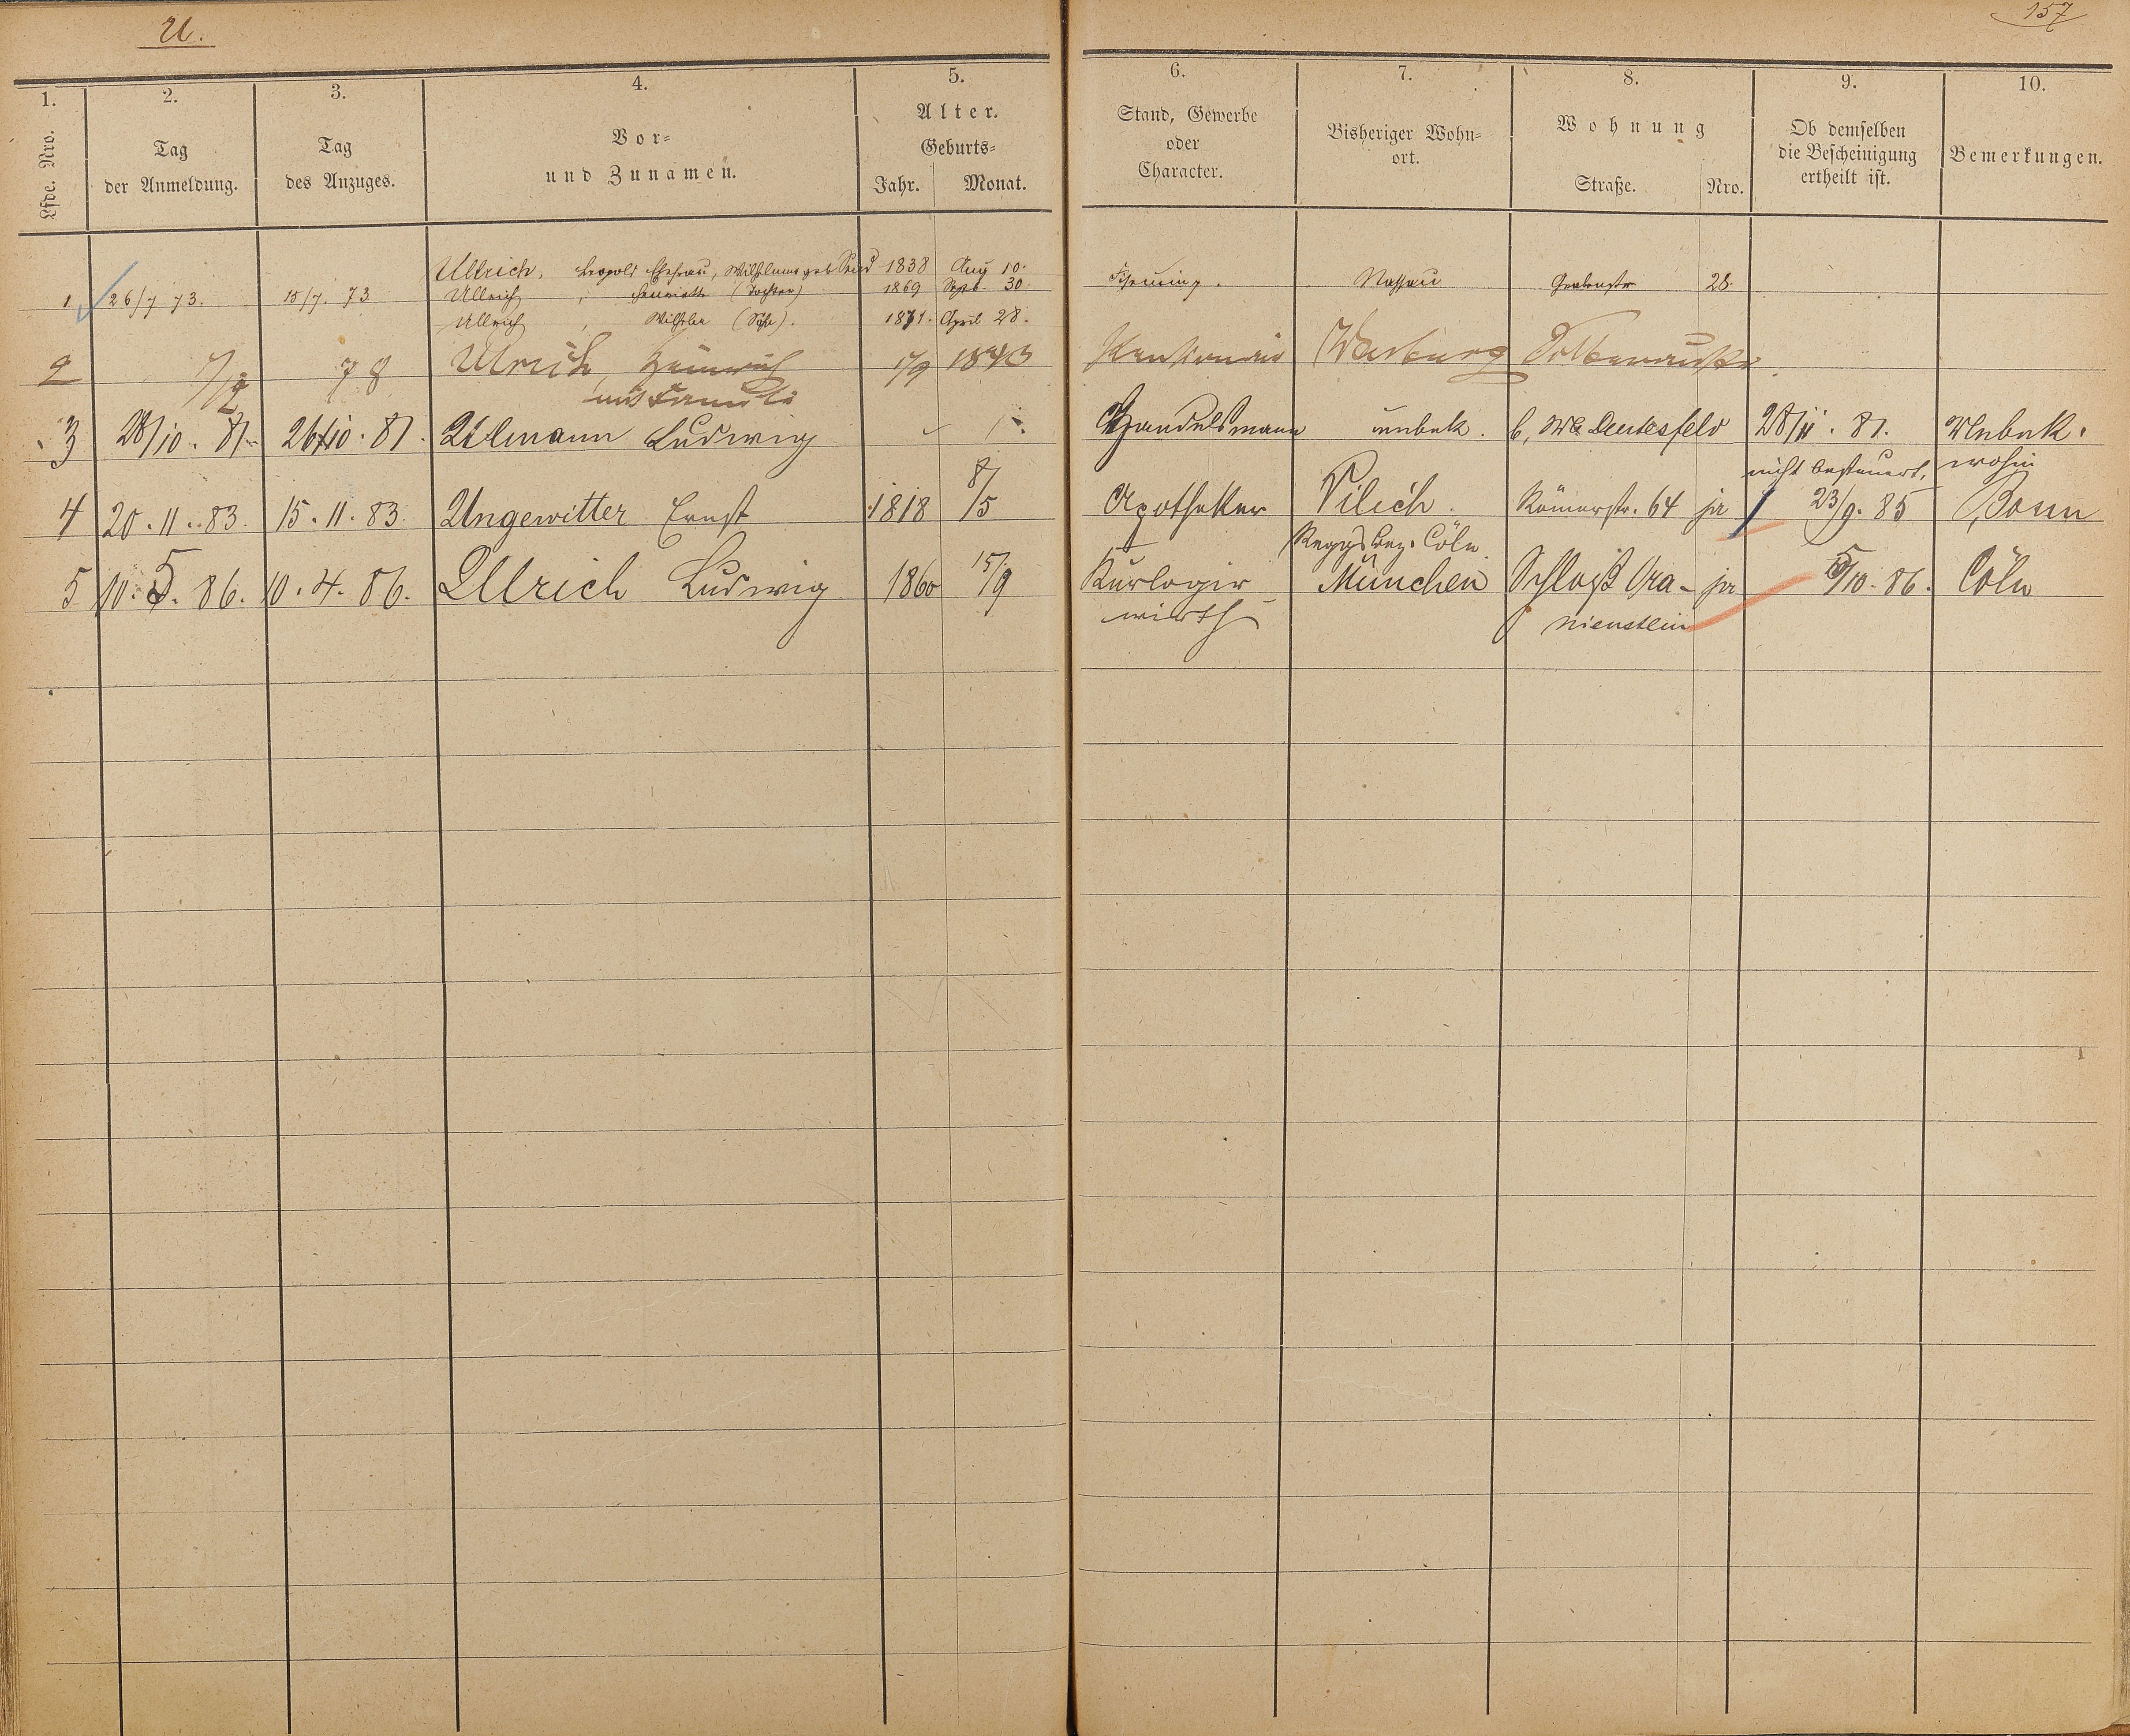 U.
157
1. 2. 3. 4. 5. 6. 7. 8. 9. 10.
Lfde. Nro.
Tag
der Anmeldung.
Tag
des Anzuges.
Vor=
und Zunamen.
Alter.
Geburts=
Jahr. Monat.
Stand, Gewerbe
oder
Character.
Bisheriger Wohn=
ort.
Wohnung
Straße. Nro.
Ob demselben
die Bescheinigung
ertheilt ist.
Bemerkungen.
Ullrich, Leopold Ehefrau, Wilhelmine geb. 1838 Aug 10.
1 26/7 73. 15/7. 73 Ullrich, Henriette (Tochter) 1869 Septb. 30. Nassau Grabenstr 28.
Ullrich, Wilhelm (Sohn). 1871. April 28.
2 7/2 78 Ulrich, Heinrich 1/9 1843
mit Familie
3 28/10. 81. 26/10. 81. Ullmann Ludwig Handelsmann unbek. b. 28/11. 81. Unbek.
nicht besteuert. wohin
4 20. 11. 83. 15. 11. 83. Ungewitter Ernst 1818 8/5 Apotheker Vilich. Römerstr. 64 ja 23/9. 85 Bonn
Reggsbez. Cöln.
5 10. 5. 86. 10. 4. 86. Ullrich Ludwig 1860 15/9 Kurlogir München Schloß Ora- ja 5/10. 86. Cöln
wirth nienstein